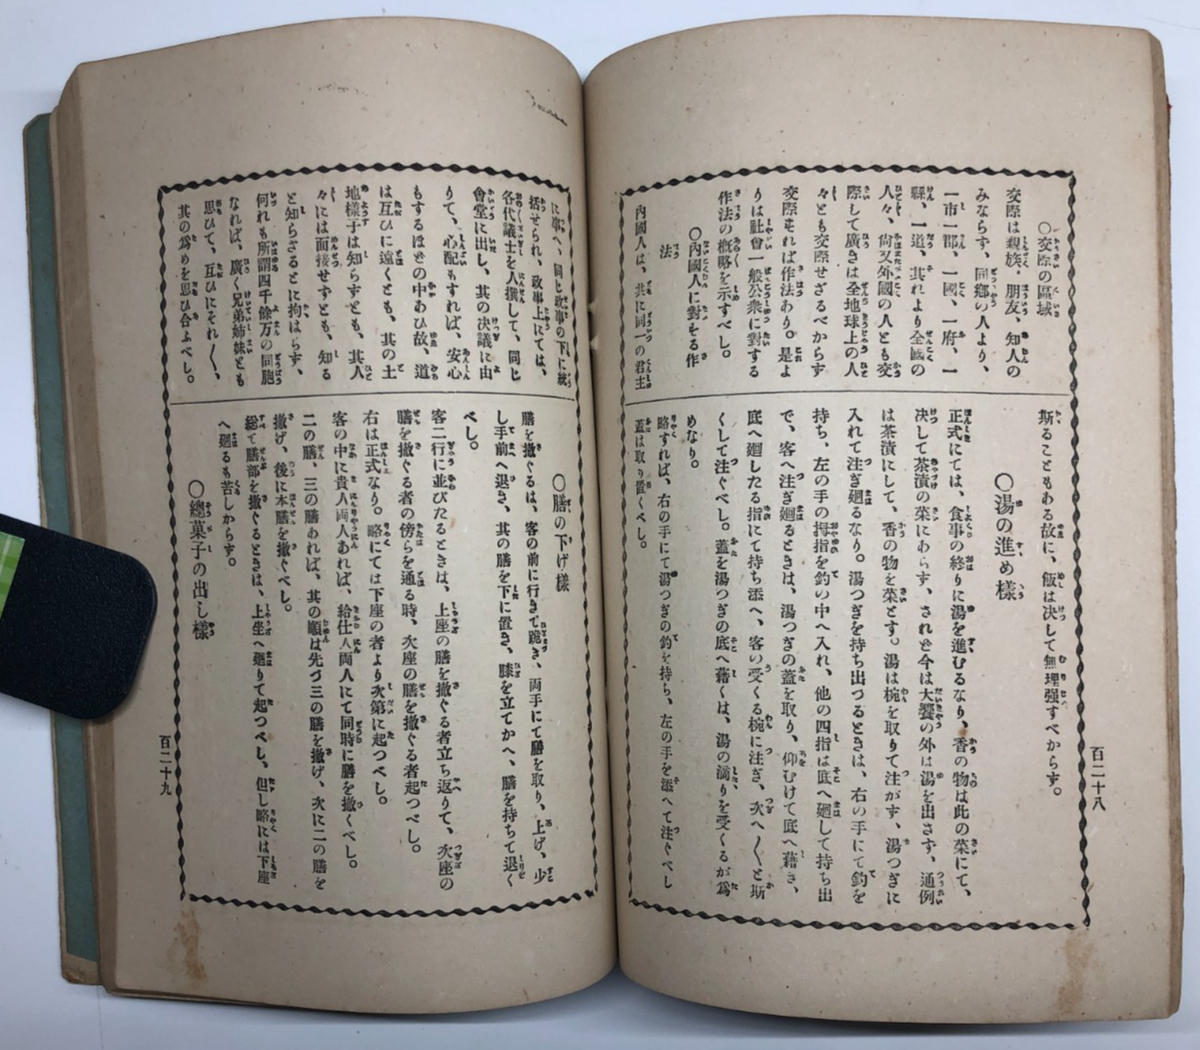 百二十八
○交際の區域
交際は親族、朋友、知人の
みならず、同鄕の人より、
一市一郡、一國、一府、一
縣、一道、其れより全國の
人々、尙又外國の人とも交
際して廣きは全地球上の人
々とも交際せざるべからず
交際すれば作法あり。是よ
りは社會一般公衆に對する
作法の槪略を示すべし。
○內國人に對する作
法
內國人は、共に同一の君主
斯ることもある故に、飯は決して無理强すべからず。
○湯の進め樣
正式にては、食事の終りに湯を進むるなり、香の物は此の菜にて、
決して茶漬の菜にあらず、されど今は大饗の外は湯を出さず、通例
は茶漬にして、香の物を菜とす。湯は椀を取りて注がず、湯つぎに
入れて注ぎ廻るなり。湯つぎを持ち出つるときは、右の手にて鈎を
持ち、左の手の拇指を鈎の中へ入れ、他の四指は底へ廻して持ち出
で、客へ注ぎ廻るときは、湯つぎの蓋を取り、仰むけて底へ藉き、
底へ廻したる指にて持ち添へ、客の受くる椀に注ぎ、次へ〱と斯
くして注ぐべし。蓋を湯つぎの底へ藉くは、湯の滴りを受くるが爲
めなり。
略すれば、右の手にて湯つぎの鈎を持ち、左の手を添へて注ぐべし
蓋は取り置くべし。
に事へ、同じ政事の下に統
括せられ、政事上にては、
各代議士を人撰して、同じ
會堂に出し、其の決議に由
りて、心配もすれば、安心
もするほどの中あひ故、道
は互ひに遠くとも、其の土
地樣子は知らずとも、其人
々には面接せずとも、知る
と知らざるとに拘はらず、
何れも所謂四千餘万の同胞
なれば、廣く兄弟姉妹とも
思ひて、互ひにそれ〱、
其の爲めを思ひ合ふべし。
○膳の下げ樣
膳を撤ぐるは、客の前に行きて跪き、両手にて膳を取り、上げ、少
し手前へ退き、其の膳を下に置き、膝を立てかへ、膳を持ちて退く
べし。
客二行に並びたるときは、上座の膳を撤ぐる者立ち返りて、次座の
膳を撤ぐる者の傍らを通る時、次座の膳を撤ぐる者起つべし。
右は正式なり。略にては下座の者より次第に起つべし。
客の中に貴人両人あれば、給仕人両人にて同時に膳を撤ぐべし。
二の膳、三の膳あれば、其の順は先づ三の膳を撤げ、次に二の膳を
撤げ、後に本膳を撤ぐべし。
総て膳部を撤ぐるときは、上坐へ廻りて起つべし、但し略には下座
へ廻るも苦しからず。
○總菓子の出し樣
百二十九